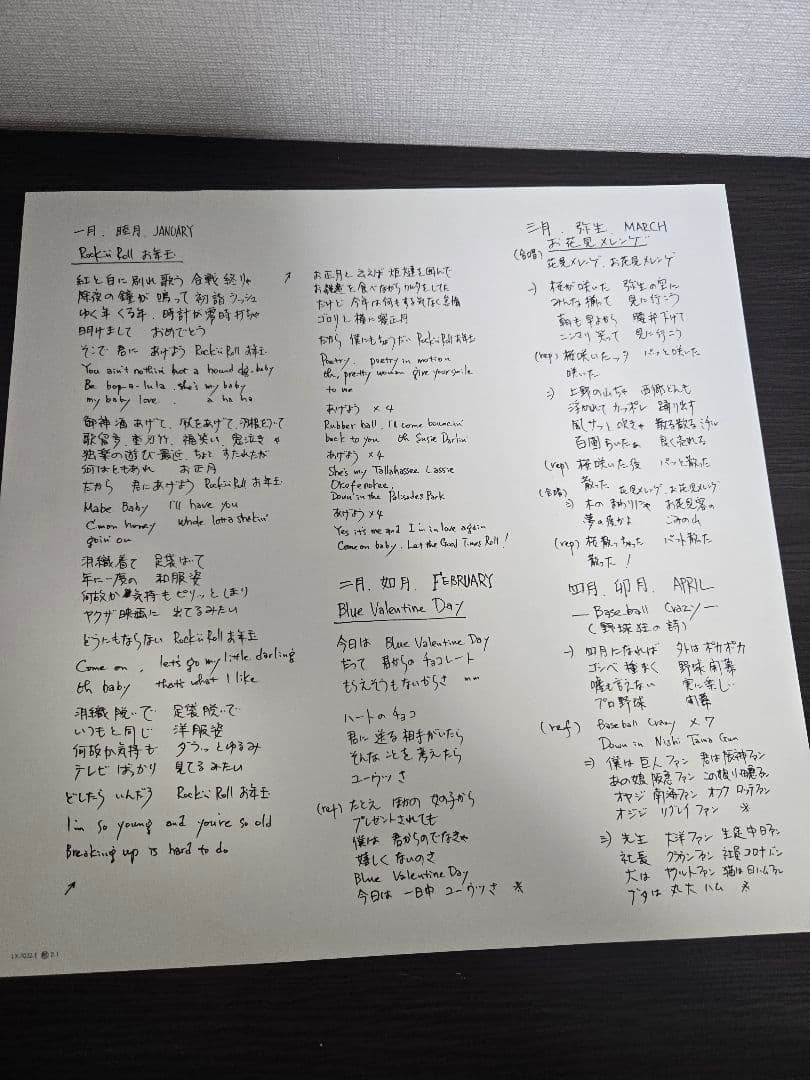 一月、睦月、JANUARY
Rock'n Roll お年玉
紅と白に別れ歌う 合戦終りゃ
除夜の鐘が 鳴って 初詣ラッシュ
ゆく年 くる年、時計が零時打ちゃ
明けまして おめでとう
そこで 君に あげよう Rock'n Roll お年玉
You ain't nothin' but a hound dog. baby
Be bop-a-lula. she's my baby
my baby love. a ha ha
御神酒あげて、凧をあげて、羽根をついて
歌留多、福笑い、
独楽の遊び 最近、ちょと すたれたが
何はともあれ お正月
だから 君にあげよう Rock'n Roll お年玉
Mabe Baby I'll have you
C'mon honey whole lotta shakin'
goin' on
羽織着て 足袋はいて
年に一度の 和服姿
何故か気持もピリッとしまり
ヤクザ映画に 出てるみたい
どうにもならない Rock'n Roll お年玉
Come on, let's go my little darling
Oh baby that's what I like
羽織脱いで 足袋脱いで
いつもと同じ 洋服姿
何故か気持も ダラっとゆるみ
テレビばっかり 見てるみたい
どしたら いんだろ Rock'n Roll お年玉
I'm so young and you're so old
Breaking up is hard to do
お正月と云えば 炬燵を囲んで
お雑煮を食べながら カルタをしてた
だけど 今年は何もする気なく
ゴロリと横に寝正月
だから 僕にもちょうだい Rock'n Roll お年玉
Poetry. poetry in motion
Oh, pretty woman give your smile
to me
あげよう ×4
Rubber ball. I'll come bouncin'
back to you Oh Susie Darlin'
あげよう ×4
She's my Tallahassee Lassie
Okefenokee,
Down in the Palisades Park
あげよう ×4
Yes it's me and I'm in love again
Come on baby. Let the Good Times Roll!
二月、如月、FEBRUARY
Blue Valentine Day
今日は Blue Valentine Day
だって 君からの チョコレート
もらえそうもないからさ
ハートのチョコ
君に 送る 相手がいたら
そんなことを考えたら
ユーウツさ
(ref) たとえ ほかの 女の子から
プレゼントされても
僕は 君からのでなきゃ
嬉しくないのさ
Blue Valentine Day
今日は 一日中 ユーウツさ ※
三月、弥生、MARCH
お花見メレンゲ
(合唱) 花見メレンゲ、お花見メレンゲ
1) 桜が咲いた 弥生の空に
みんな揃って 見に行こう
朝も早よから 腰弁下げて
ニッコリ笑って 見に行こう
(rep) 桜咲いたッタ パッと咲いた
咲いた
2) 上野の山ちゃ 西郷どんも
浮かれて カッポレ 踊り出す
風サット 吹きゃ 散る散る ミチル
良く売れる
(rep) 桜咲いた後 パッと散った
散った
(合唱) 花見メレンゲ、お花見メレンゲ
3) 木の まわりにゃ お花見客の
夢の度かよ ごみの山
(rep) 桜散っちゃった パット散た
散った!
四月、卯月、APRIL
—Baseball Crazy—
(野球狂の詩)
1) 四月になれば 外はポカポカ
ゴンベ種まく 野球開幕
嘘も言えない 実に楽しい
プロ野球 開幕
(ref) Baseball Crazy ×7
Down in Nishi Tama Gun
2) 僕は 巨人ファン 君は阪神ファン
あの娘 阪急ファン この娘
オヤジ 南海ファン オフクロ ロッテファン
オジジ リグレイファン ※
3) 先生 大洋ファン 生徒 中日ファン
社長 クラウンファン 社員コロナバン
犬は ヤクルトファン 猫は日ハムファン
ブタは 丸大ハム ※